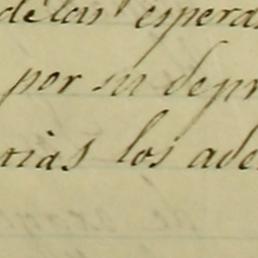 de las espera
por su depr
rias los ade